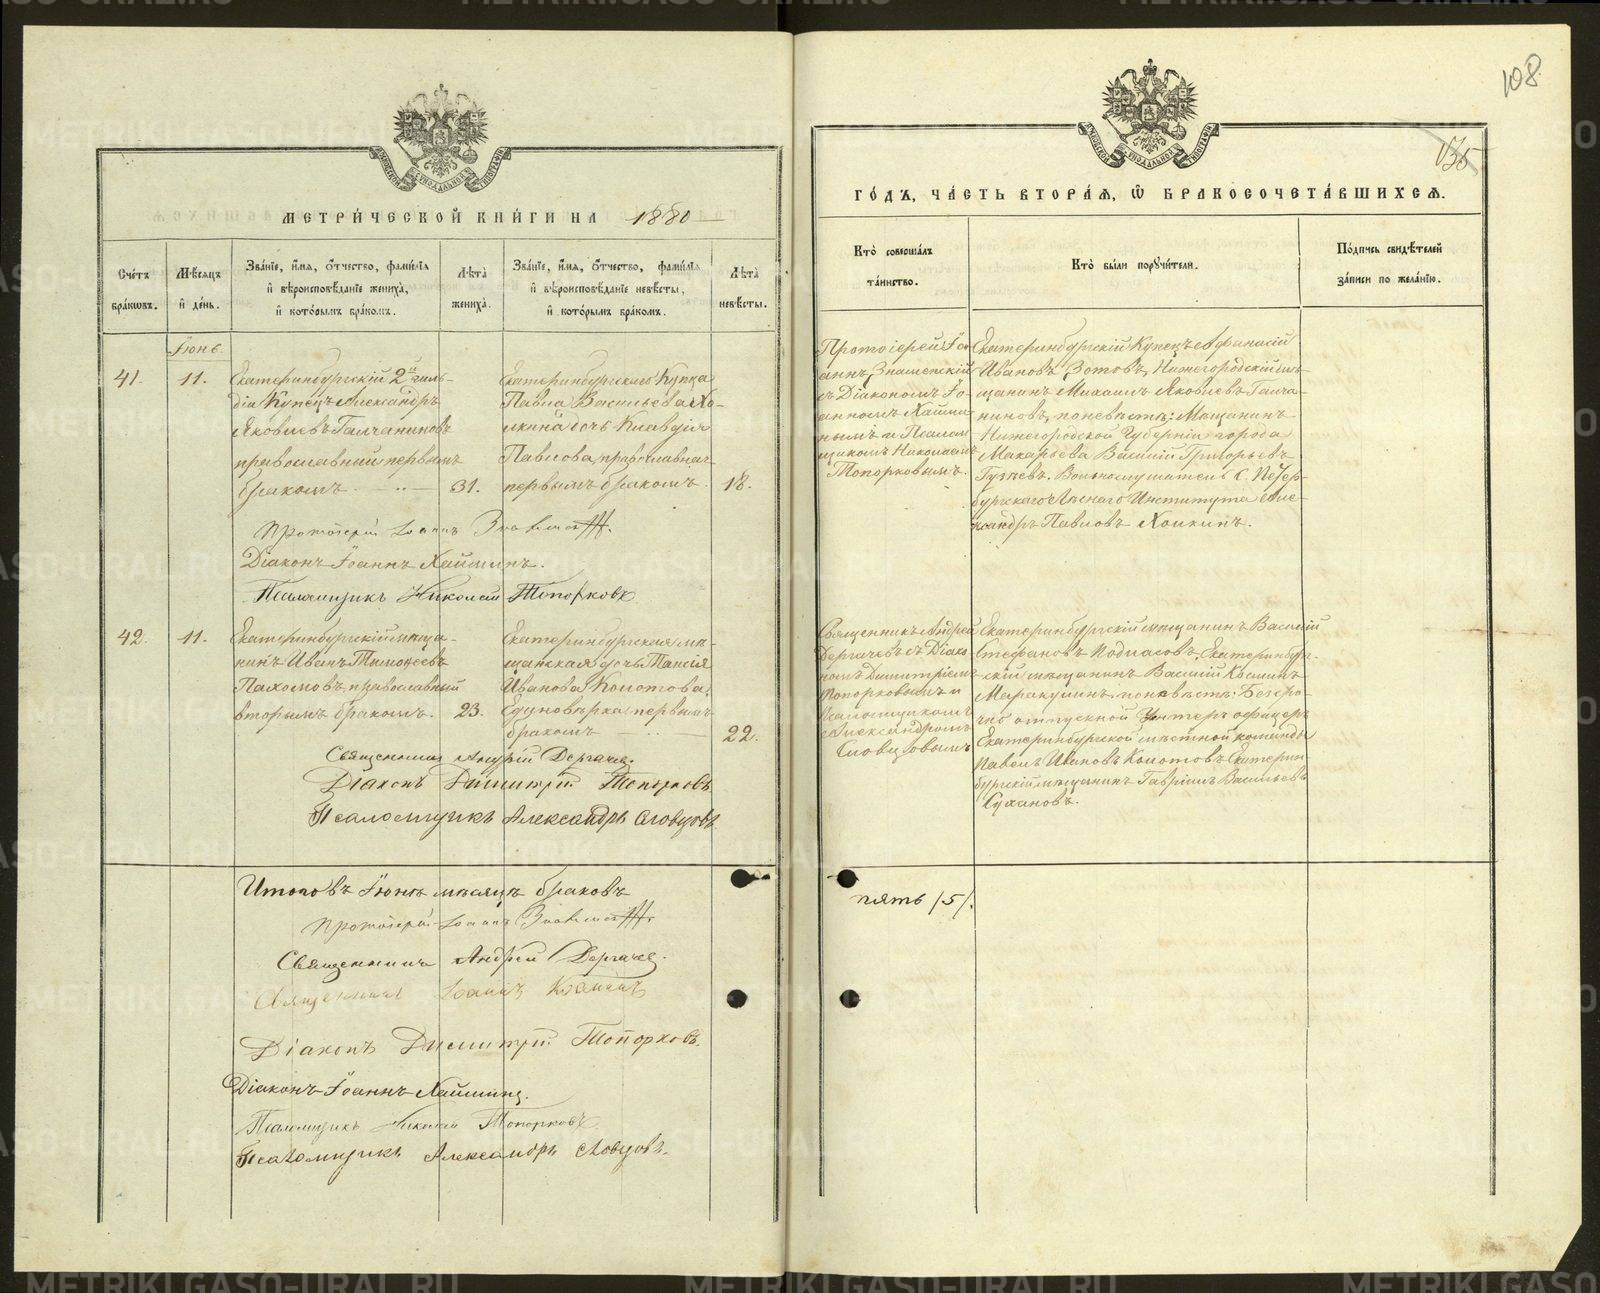 108
135
МЕТРИ́ЧЕСКОЙ КНИ́ГИ НА 1880
ГО́ДЪ, ЧА́СТЬ ВТОРА́Я, Ѿ БРАКОСОЧЕТА́ВШИХСЯ.
Сче́тъ бра́ковъ.
Мѣ́сяцъ и де́нь.
Зва́нїе, и́мя, о́тчество, фами́лїя
и вѣроисповѣ́данїе жениха̀,
и кото́рымъ бра́комъ.
Лѣ́та жениха̀.
Зва́нїе, и́мя, о́тчество, фами́лїя
и вѣроисповѣ́данїе невѣ́сты,
и кото́рымъ бра́комъ.
Лѣ́та невѣ́сты.
Кто̀ соверша́лъ
та́инство.
Кто̀ бы́ли поручи́тели.
По́дпись свидѣ́телей
за́писи по жела́нїю.
Іюнь.
41.
11.
Екатеринбургскій 2й гиль-
діи Купецъ Александръ
Яковлевъ Галчаниновъ
православный первымъ
бракомъ
31.
Екатеринбургскаго Купца
Павла Васильева Хо-
мкина дочь Клавдія
Павлова, православная
первымъ бракомъ.
18.
Протоіерей Іо-
аннъ Знаменскій
съ Діакономъ Іо-
анномъ Хайми-
нымъ и Псалом-
щикомъ Николаемъ
Топорковымъ.
Екатеринбургскій Купецъ Афанасій
Ивановъ Зотовъ, Нижегородскій мѣ-
щанинъ Михаилъ Яковлевъ Галча-
ниновъ, по невѣстѣ: Мѣщанинъ
Нижегородской Губерніи города
Макарьева Василій Григорьевъ
Вольнослушатель С. Петер-
бургскаго Лѣснаго Института Алек-
сандръ Павловъ
Протоіерей Іоаннъ
Діаконъ Іоаннъ Хайминъ.
Псаломщикъ Николай Топорковъ
42.
11.
Екатеринбургскій мѣща-
нинъ Иванъ Тимоѳеевъ
Пахомовъ, православный
вторымъ бракомъ.
23.
Екатеринбургская мѣ-
щанская дочь Таисія
Иванова Колотова,
Единовѣрка первымъ
бракомъ
22.
Священникъ Андрей
Дергачевъ съ Діако-
номъ Димитріемъ
Топорковымъ и
Псаломщикомъ
Александромъ
Словцовымъ
Екатеринбургскій мѣщанинъ Василій
Стефановъ Екатеринбург-
скій мѣщанинъ Василій
по невѣстѣ: Безсро-
чно отпускной Унтеръ офицеръ
Екатеринбургской мѣстной команды
Павелъ Ивановъ Колотовъ, Екатерин-
бургскій мѣщанинъ Гавріилъ Васильевъ
Сухановъ.
Священникъ Андрей Дергачев.
Діаконъ Димитрій Топорковъ
Псаломщикъ Александръ Словцовъ
Итого въ Іюнѣ мѣсяцѣ браковъ
пять /5/.
Протоіерей Іоаннъ
Священникъ Андрей Дергачев.
Священникъ Іоаннъ
Діаконъ Димитрій Топорковъ.
Діаконъ Іоаннъ Хайминъ.
Псаломщикъ Николай Топорковъ
Псаломщикъ Александръ Словцовъ.
METRIKI.GASO-URAL.RU